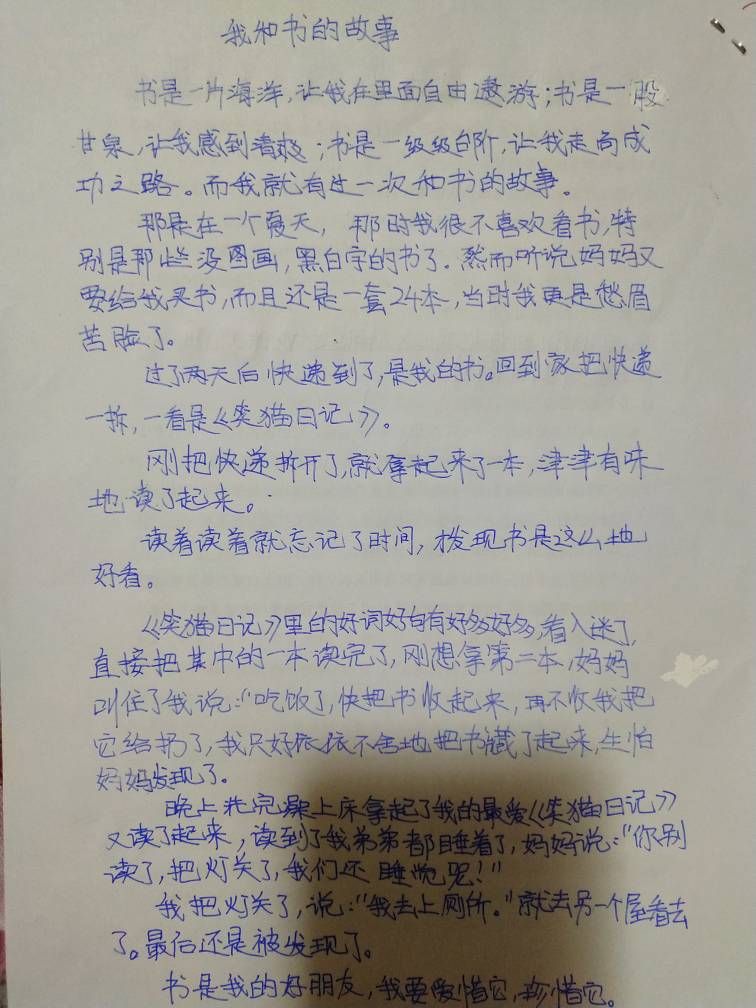 我和书的故事
书是一片海洋，让我在里面自由遨游；书是一股
甘泉，让我感到清爽；书是一级级台阶，让我走向成
功之路。而我就有过一次和书的故事。
那是在一个夏天，那时我很不喜欢看书，特
别是那些没图画，黑白字的书了。然而听说妈妈又
要给我买书，而且还是一套24本，当时我更是愁眉
苦脸了。
过了两天后快递到了，是我的书。回到家把快递
一拆，一看是《笑猫日记》。
刚把快递拆开了，就拿起来了一本，津津有味
地读了起来。
读着读着就忘记了时间，才发现书是这么地
好看。
《笑猫日记》里的好词好句有好多好多，看入迷了，
直接把其中的一本读完了，刚想拿第二本，妈妈
叫住了我说：“吃饭了，快把书收起来，再不收我把
它给扔了，我只好依依不舍地把书藏了起来，生怕
妈妈发现了。
晚上洗完澡上床拿起了我的最爱《笑猫日记》
又读了起来，读到了我弟弟都睡着了，妈妈说：“你别
读了，把灯关了，我们还睡觉呢！”
我把灯关了，说：“我去上厕所。”就去另一个屋看去
了。最后还是被发现了。
书是我的好朋友，我要爱惜它，珍惜它。